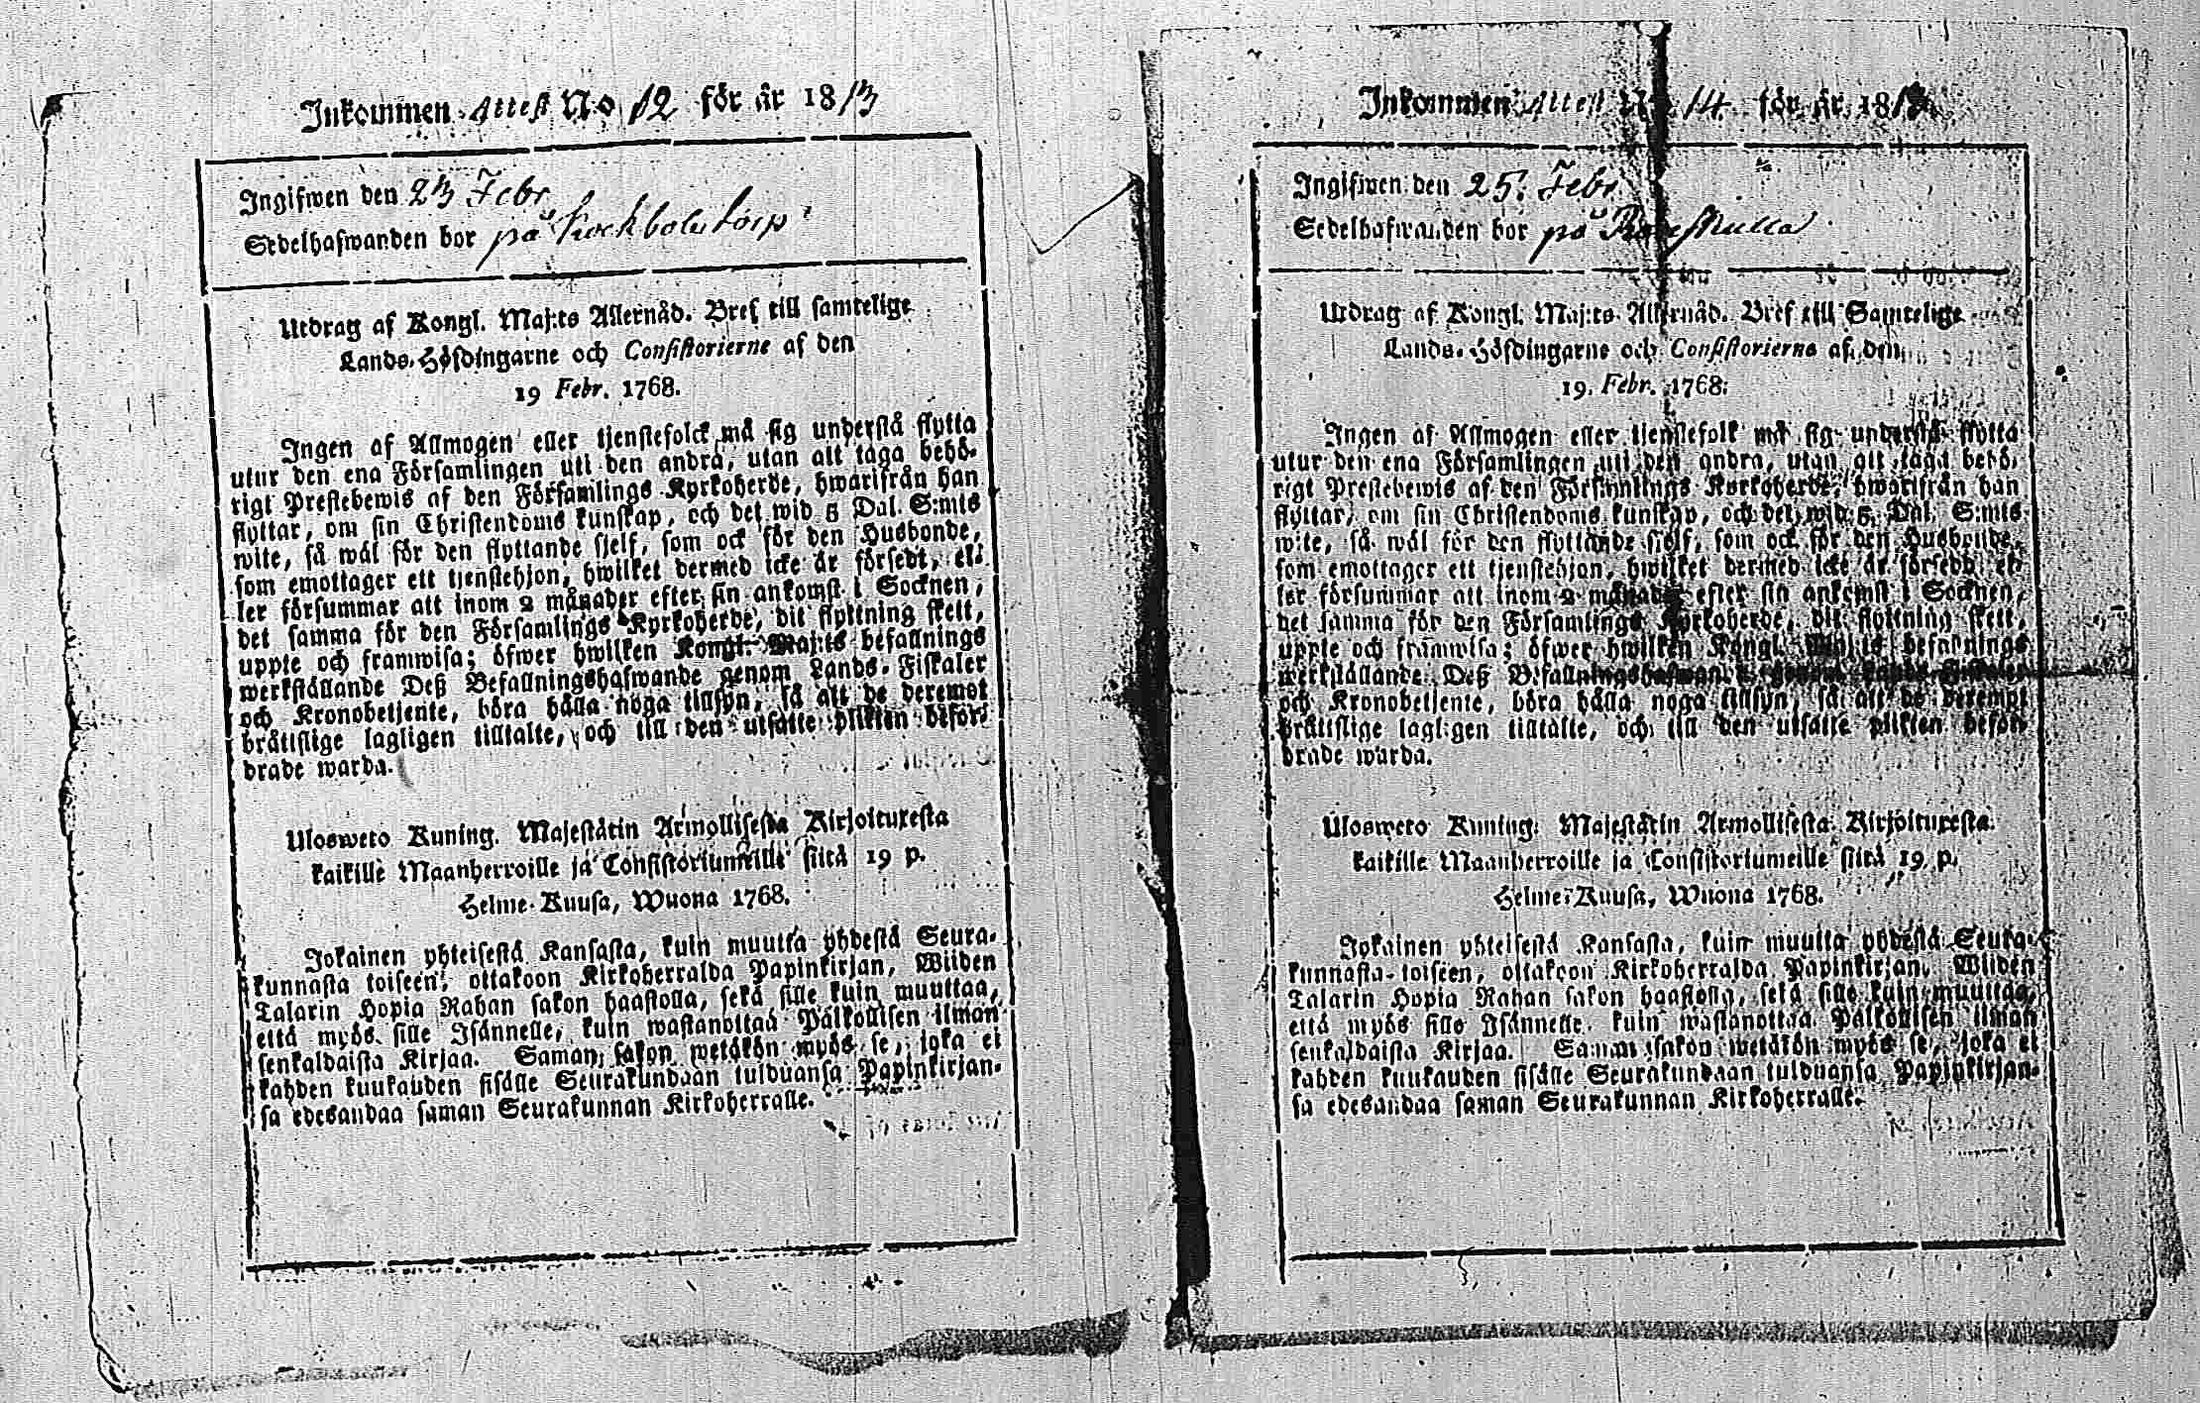 Inkommen Attest No 12 för år 1813
Ingifwen den 23 Febr
Sedelhafwanden bor på
Utdrag af Kongl. Maj:ts Allernåd. Bref till samtelige
Lands-Höfdingarne och Consistorierne af den
19 Febr. 1768.
Ingen af Allmogen eller tjenstefolck må sig understå flytta
utur den ena Församlingen uti den andra, utan att taga behö-
rigt Prestebewis af den Församlings Kyrkoherde, hwarifrån han
flyttar, om sin Christendoms kunskap, och det wid 5 Dal. S:mts
wite, så wäl för den flyttande sjelf, som ock för den Husbonde,
som emottager ett tjenstehjon, hwilket dermed icke är försedt, el-
ler försummar att inom 2 månader efter sin ankomst i Socknen,
det samma för den Församlings Kyrkoherde, dit flyttning skett,
uppte och framwisa; öfwer hwilken Kongl. Maj:ts befallnings
werkställande Deß Befallningshafwande genom Lands-Fiskaler
och Kronobetjente, böra hålla noga tillsyn, så att de deremot
bråttslige lagligen tilltalte, och till den utsatte plikten beför-
drade warda.
Ulosweto Kuning. Majestätin Armollisesta Kirjoituxesta
kaikille Maanherroille ja Consistoriumeille siitä 19 p.
Helme-Kuusa, Wuona 1768.
Jokainen yhteisestä Kansasta, kuin muutta yhdestä Seura-
kunnasta toiseen, ottakoon Kirkoherralda Papinkirjan, Wiiden
Talarin Hopia Rahan sakon haastolla, sekä sille kuin muuttaa,
että myös sille Isännelle, kuin wastanottaa Palkollisen ilman
senkaldaista Kirjaa. Saman sakon wetäkön myös se, joka ei
kahden kuukauden sisälle Seurakundaan tulduansa Papinkirjan-
sa edesandaa saman Seurakunnan Kirkoherralle.
Inkommen Attest No 14 för år 181
Ingifwen den 25. Febr
Sedelhafwanden bor på
Utdrag af Kongl. Maj:ts Allernåd. Bref till Samtelige
Lands-Höfdingarne och Consistorierne af den
19. Febr. 1768.
Ingen af Allmogen eller tjenstefolk må sig understå flytta
utur den ena Församlingen uti den andra, utan att taga behö-
rigt Prestebewis af den Församlings Kyrkoherde, hwarifrån han
flyttar, om sin Christendoms kunskap, och det wid 5. Dal. S:mts
wite, så wäl för den flyttande sjelf, som ock för den Husbonde,
som emottager ett tjenstehjon, hwilket dermed icke är försedd, el-
ler försummar att inom 2 månader efter sin ankomst i Socknen,
det samma för den Församlings Kyrkoherde, dit flyttning skett,
uppte och framwisa; öfwer hwilken Kongl. Maj:ts befallnings
werkställande Deß Befallningshafwande genom Lands-Fiskaler
och Kronobetjente, böra hålla noga tillsyn, så att de deremot
bråttslige lagligen tilltalte, och till den utsatte plikten beför-
drade warda.
Ulosweto Kuning. Majestätin Armollisesta Kirjoituxesta
kaikille Maanherroille ja Consistoriumeille siitä 19 p.
Helme-Kuusa, Wuona 1768.
Jokainen yhteisestä Kansasta, kuin muutta yhdestä Seura-
kunnasta toiseen, ottakoon Kirkoherralda Papinkirjan, Wiiden
Talarin Hopia Rahan sakon haastolla, sekä sille kuin muuttaa,
että myös sille Isännelle, kuin wastanottaa Palkollisen ilman
senkaldaista Kirjaa. Saman sakon wetäkön myös se, joka ei
kahden kuukauden sisälle Seurakundaan tulduansa Papinkirjan-
sa edesandaa saman Seurakunnan Kirkoherralle.